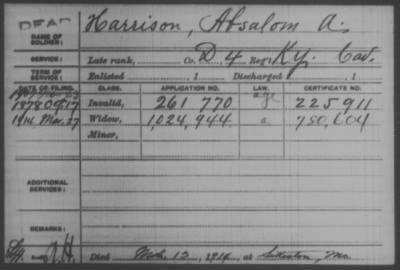 DEAD
NAME OF SOLDIER:
Harrison, Absalom A.
SERVICE:
Late rank, Co. D 4 Reg't Ky. Cav.
TERM OF SERVICE:
Enlisted , 1 Discharged , 1
DATE OF FILING. CLASS. APPLICATION NO. LAW. CERTIFICATE NO.
1878 Oct 17 Invalid, 261 770 225 911
1914 Mar. 27 Widow, 1,024,944. a. 780,604
Minor,
ADDITIONAL SERVICES:
REMARKS:
Died Mch. 12, 1914, at Sikeston, Mo.